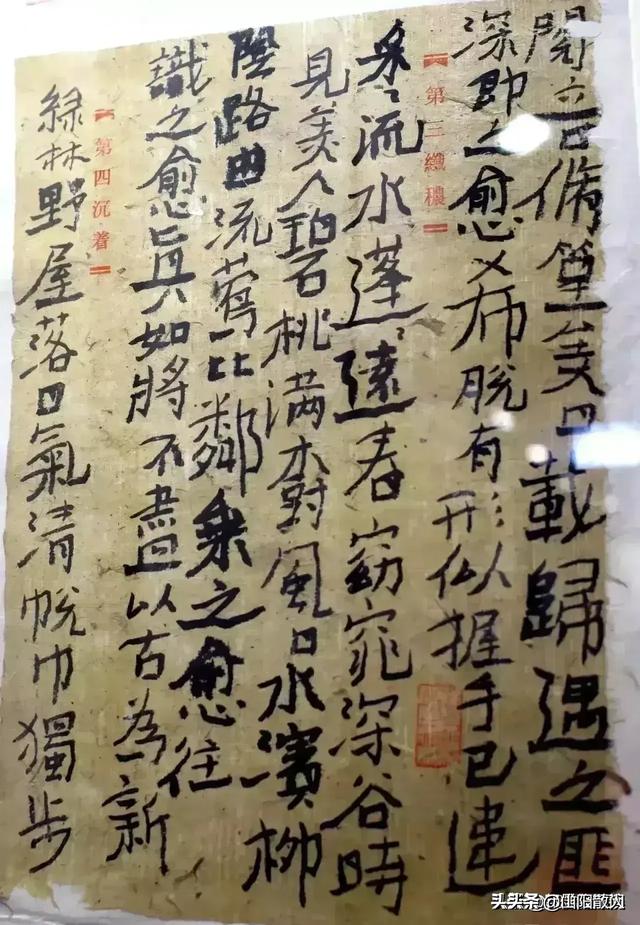 閱音脩篁美曰載歸遇之匪
深即之愈希脱有形似握手已違
第三纖穠
采〻流水蓬〻遠春窈窕深谷時
見美人碧桃满樹風日水濱柳
陰路曲流鶯比鄰乘之愈往
識之愈真如將不盡以古為新
第四沉着
緑林野屋落日氣清脱巾獨步
头条